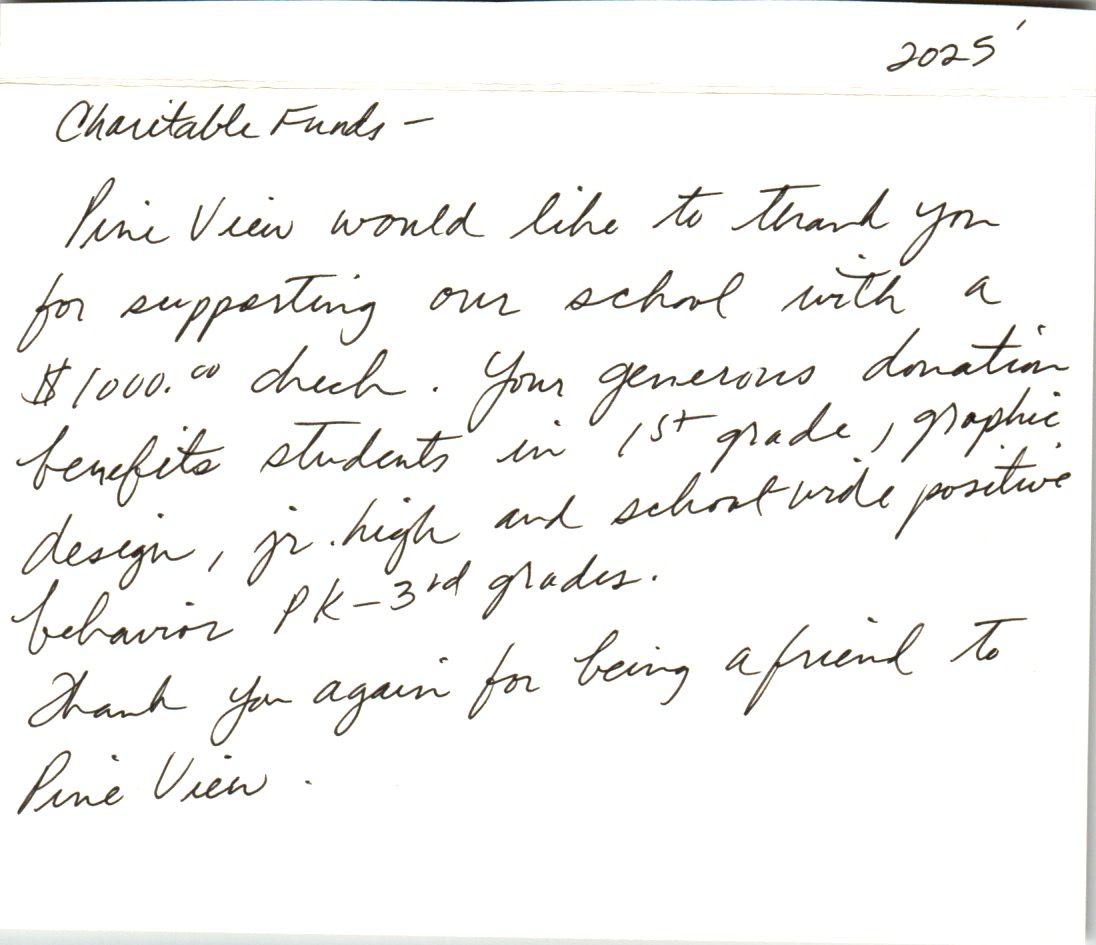 2025
Charitable Funds –
Pine View would like to thank you
for supporting our school with a
$1000.00 check. Your generous donation
benefits students in 1st grade, graphic
design, jr. high and school wide positive
behavior PK–3rd grades.
Thank you again for being a friend to
Pine View.